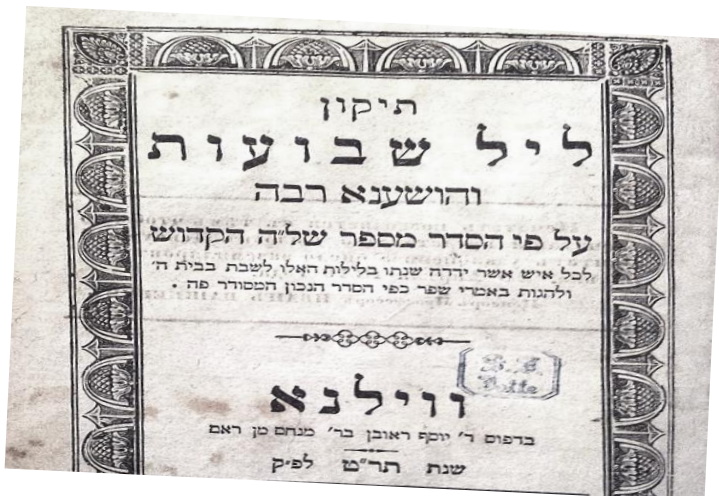 תיקון
ליל שבועות
והושענא רבה
על פי הסדר מספר של״ה הקדוש
לכל איש אשר ידרה שנתו בלילות האלו לשבת בבית ה׳
ולהגות באמרי שפר כפי הסדר הנכון המסודר פה .
ווילנא
בדפוס ר׳ יוסף ראובן בר׳ מנחם מן ראם
שנת תר״ט לפ״ק